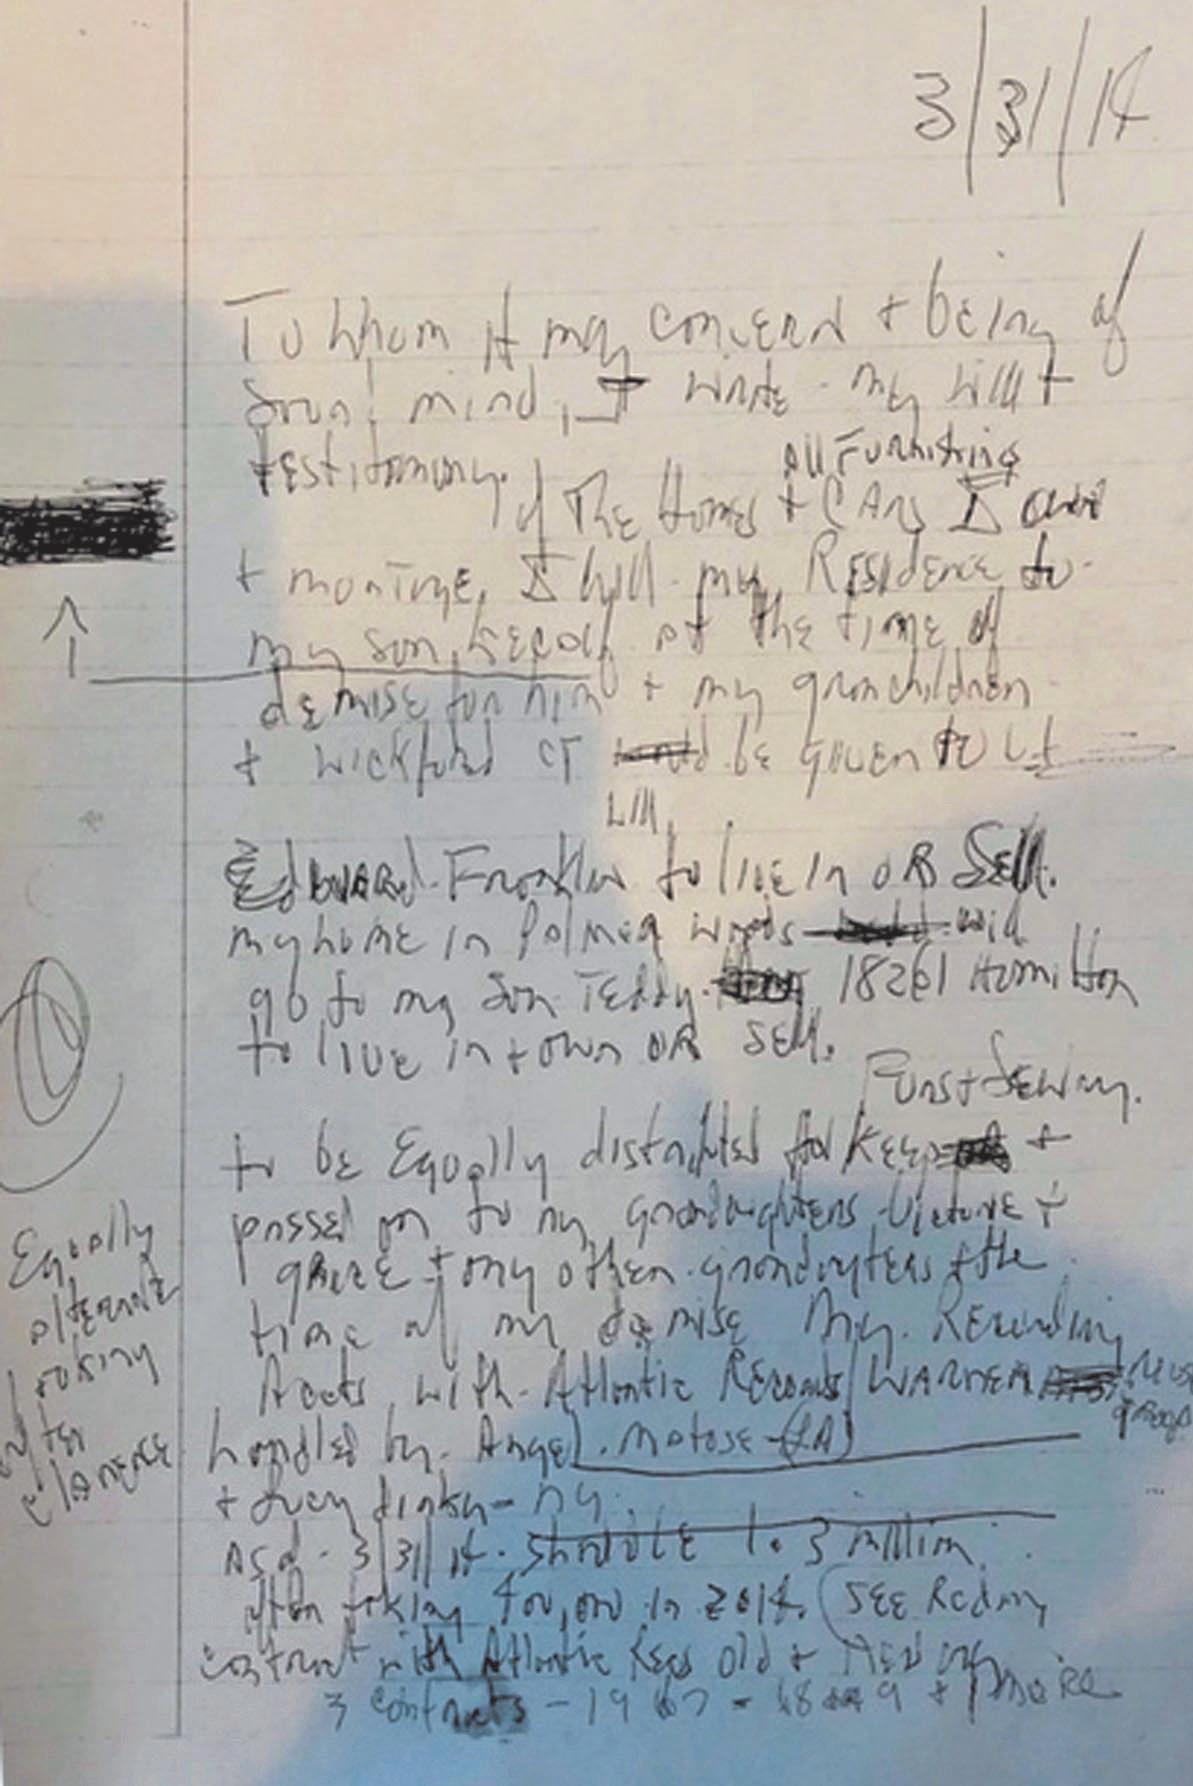 3/31/14
To Whom it may concern + being of
sound mind, I write my will +
testimony.
All Furnishing
of The Homes + CARs I own
+ mortgage, I will my Residence to
my son Kecalf at the time of
demise for him + my grandchildren
+ wickford CT be given to
will
Edward Franklin to live in OR Sell.
my home in Palmer woods will
go to my son Teddy. 18261 Hamilton
to live in + own OR sell.
Furs + Jewelry.
to be Equally distributed for Keeps +
passed on to my grandaughters Victorie +
grace + my other grandaughters the
time of my demise My Recording
Accts with Atlantic Records / WARNER Music
group
handled by Angel Matose (LA)
+ ny.
As of 3/31/14 should be 1.3 million
after taking 400,000 in 2014. (SEE Recding
contract with Atlantic Recs old + New
3 contracts - 1967 - 68 + 9 + more
Equally
alternate
taking
after
clarence